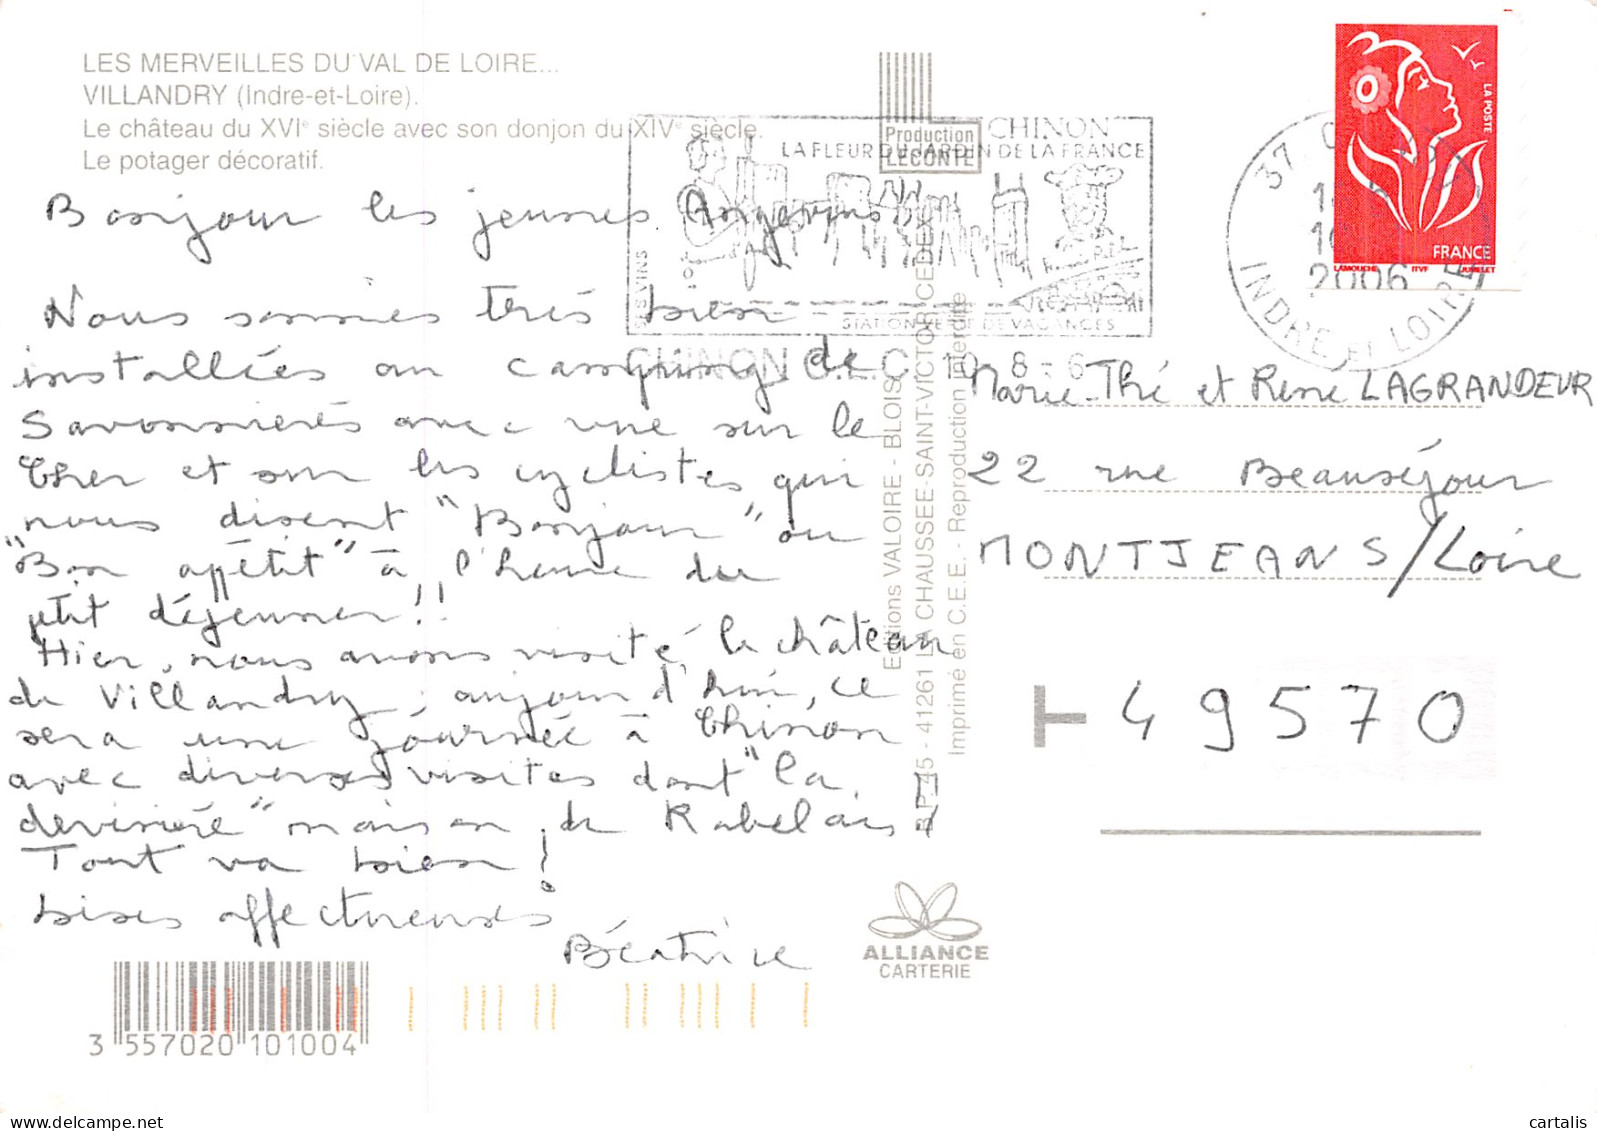 LES MERVEILLES DU VAL DE LOIRE...
VILLANDRY (Indre-et-Loire).
Le château du XVIe siècle avec son donjon du XIVe siècle.
Le potager décoratif.
Bonjour les jeunes Angevins
Nous sommes très bien
installées au camping de
Savonnières avec vue sur le
Cher et sur les cyclistes qui
nous disent "Bonjour" ou
"Bon appétit" à l'heure du
petit déjeuner!!
Hier, nous avons visité le château
de Villandry, aujourd'hui, ce
sera une journée à Chinon
avec diverses visites dont "la
devinière" maison de Rabelais
Tout va bien!
bises affectueuses
Béatrice
Production
LECONTE
CHINON
LA FLEUR DU JARDIN DE LA FRANCE
SES VINS
STATION VERTE DE VACANCES
CHINON 10-8-6
37
2006
INDRE ET LOIRE
LA POSTE
FRANCE
LAMOUCHE ITVF JUMELET
Editions VALOIRE - BLOIS
B.P. 45 - 41261 LA CHAUSSEE-SAINT-VICTOR CEDEX
Imprimé en C.E.E. - Reproduction interdite
Marie-Thé et René LAGRANDEUR
22 rue Beauséjour
MONTJEAN S/Loire
49570
ALLIANCE
CARTERIE
3 557020 101004
cartalis